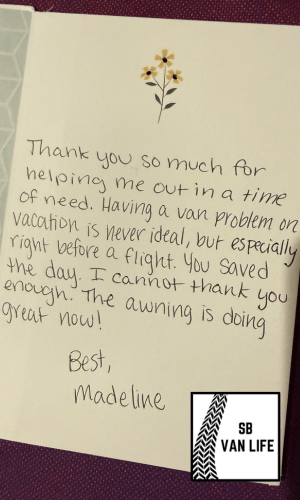 Thank you so much for
helping me out in a time
of need. Having a van problem on
vacation is never ideal, but especially
right before a flight. You saved
the day. I cannot thank you
enough. The awning is doing
great now!
Best,
Madeline
SB
VAN LIFE